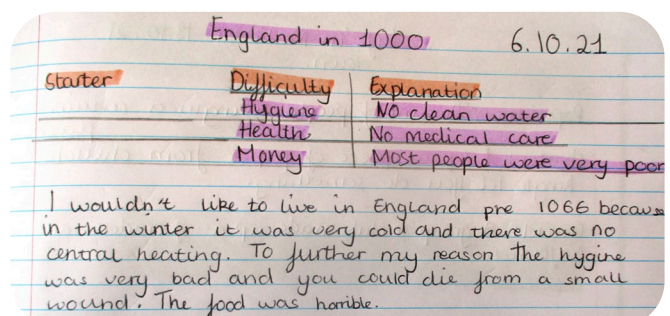 England in 1000 6.10.21
Starter Difficulty Explanation
Hygiene No clean water
Health No medical care
Money Most people were very poor
I wouldn't like to live in England pre 1066 because
in the winter it was very cold and there was no
central heating. To further my reason the hygine
was very bad and you could die from a small
wound. The food was horrible.